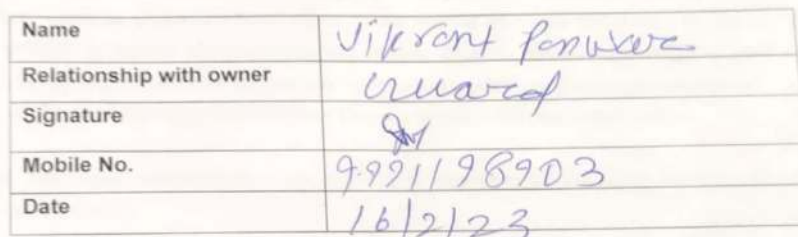 Name Vikrant Panwar
Relationship with owner Guard
Signature
Mobile No. 9991198903
Date 16/2/23